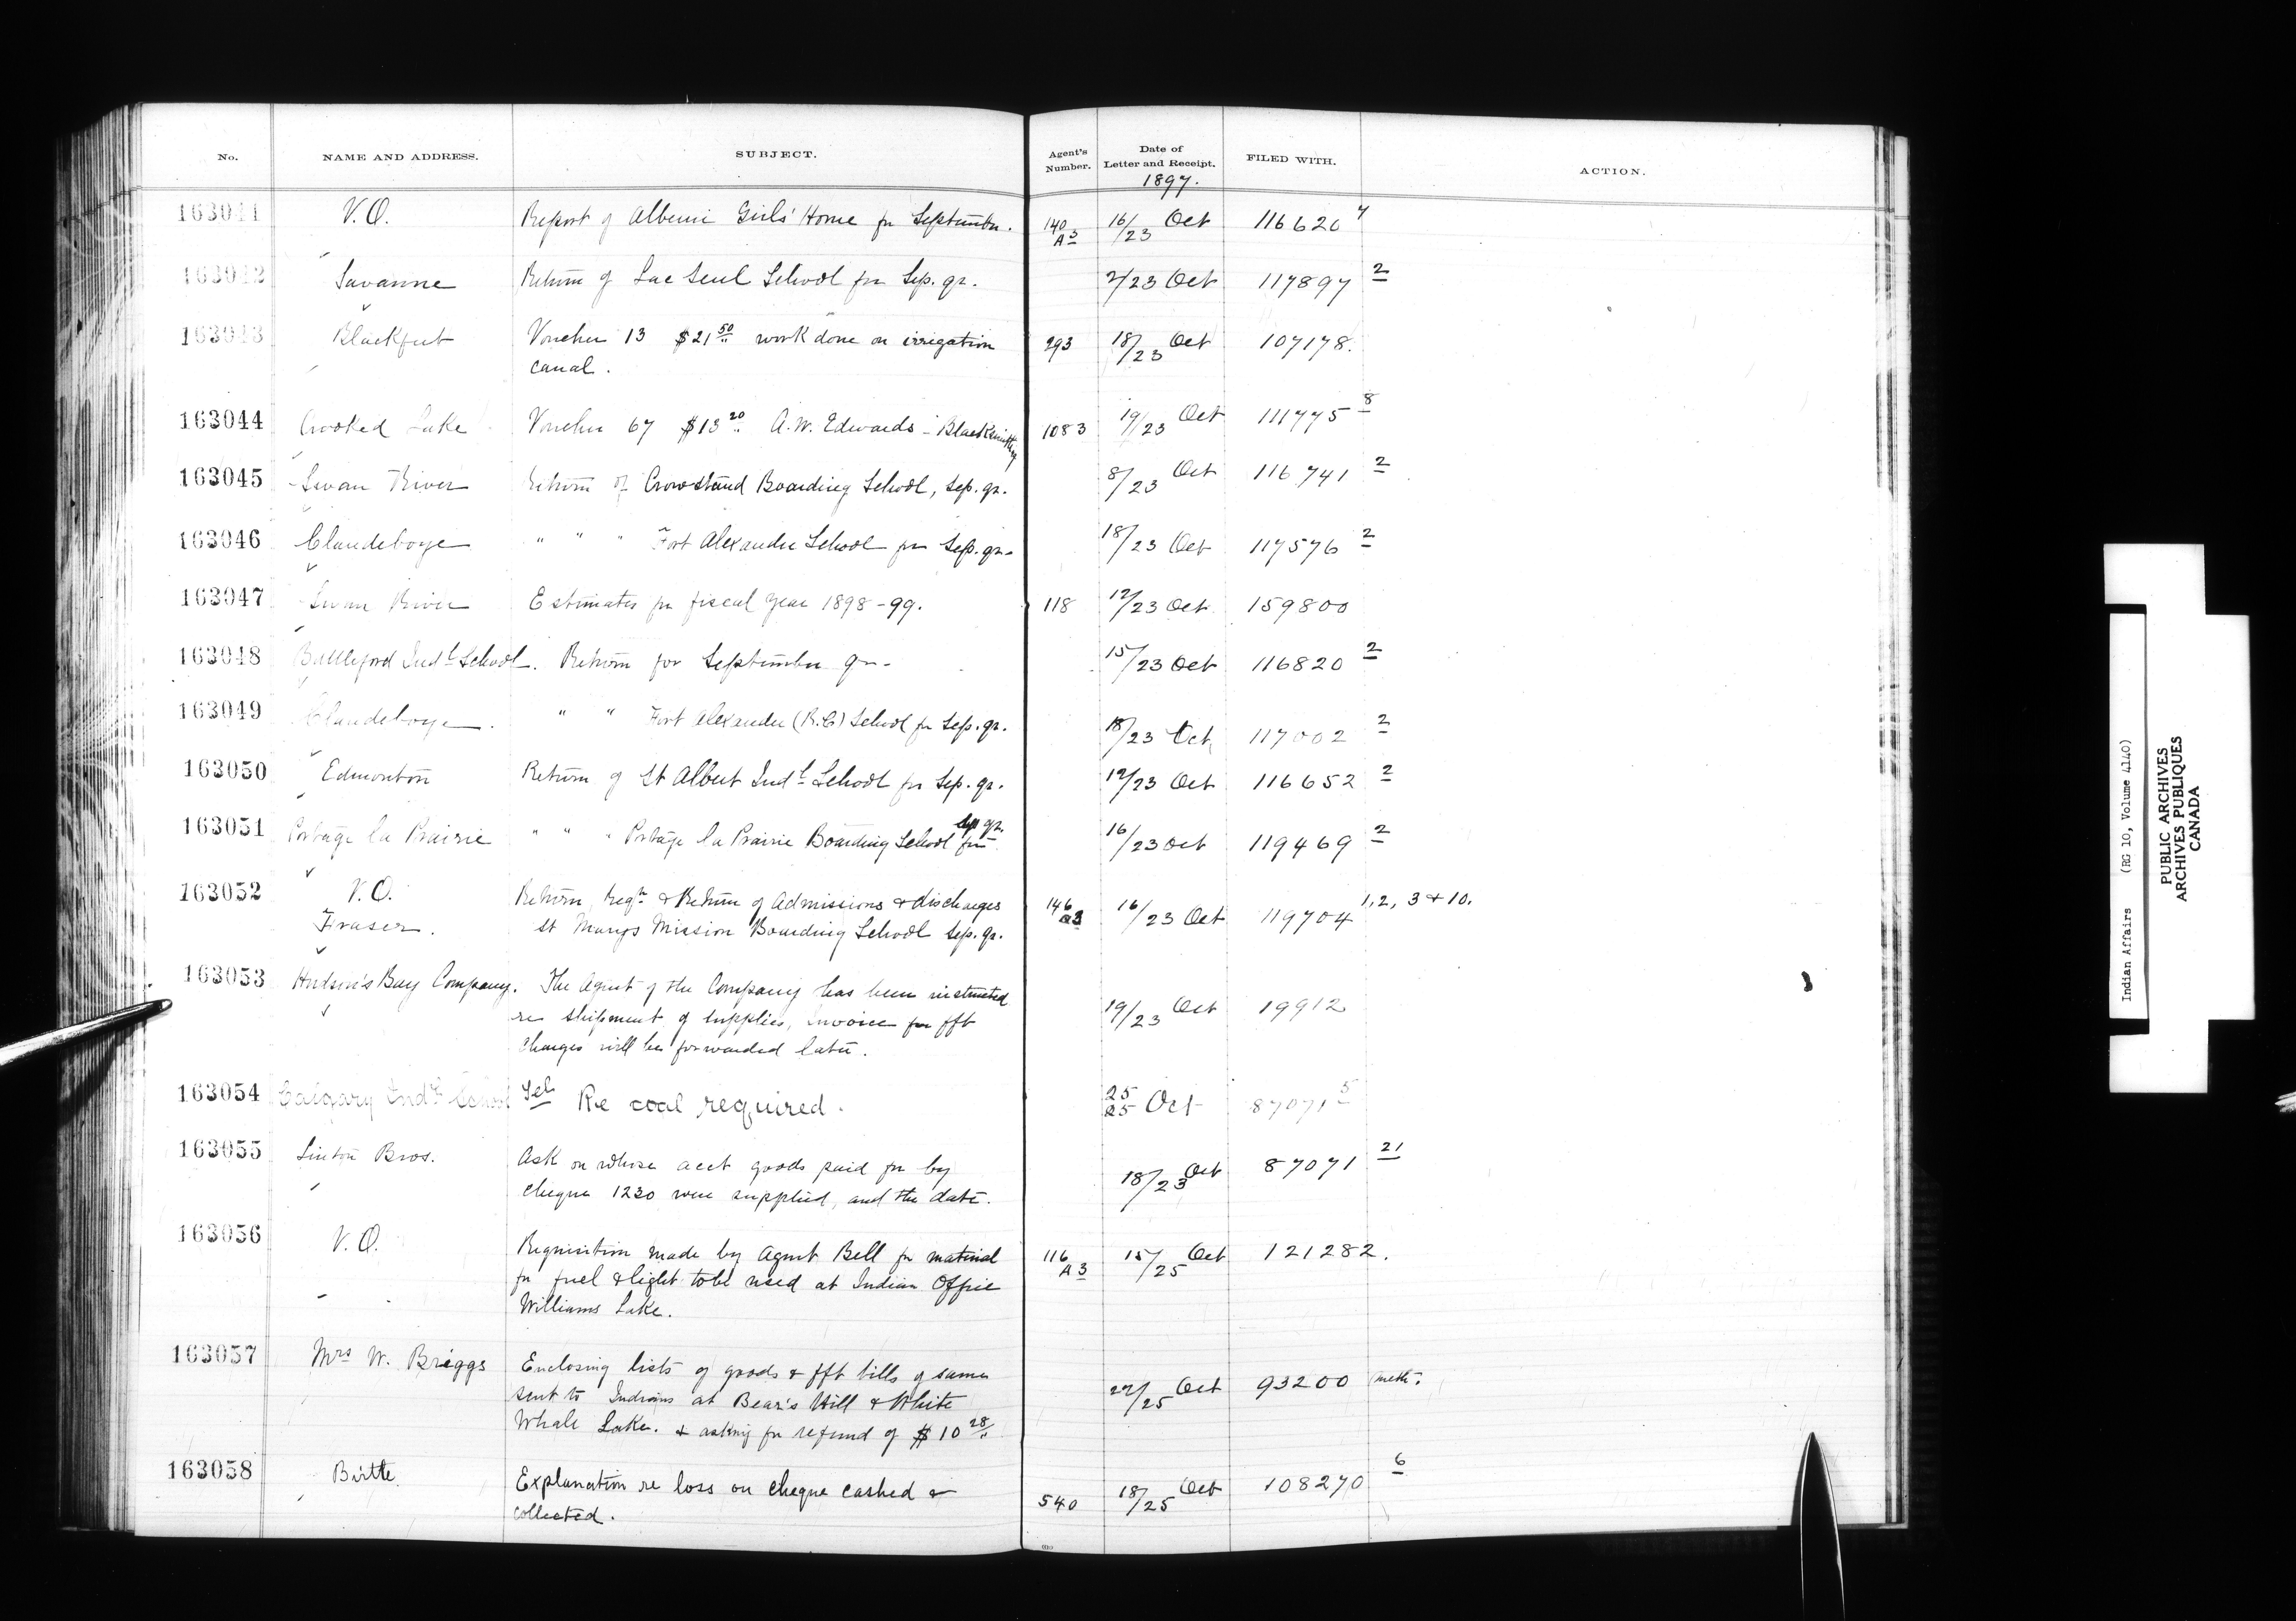 No. NAME AND ADDRESS. SUBJECT. Agent's Number. Date of Letter and Receipt. FILED WITH. ACTION.
1897.
163041 V.O. Report of Alberni Girls' Home for September. 140 A3 16/23 Oct 116620 7
163042 Savanne Return of Lac Seul School for Sep. qr. 2/23 Oct 117897 2
163043 Blackfoot Voucher 13 $21 50 work done on irrigation 293 18/23 Oct 107178.
canal.
163044 Crooked Lake Voucher 67 $13 20 A.W. Edwards - Blacksmithing 1083 19/23 Oct 111775 8
163045 Swan River Return of Crowstand Boarding School, Sep. qr. 8/23 Oct 116741 2
163046 Clandeboye " " " Fort Alexander School for Sep. qr. 18/23 Oct 117576 2
163047 Swan River Estimates for fiscal year 1898-99. 118 12/23 Oct 159800
163048 Battleford Indl School. Return for September qr. 15/23 Oct 116820 2
163049 Clandeboye. " " Fort Alexander (R.C) School for Sep. qr. 18/23 Oct 117002 2
163050 Edmonton Return of St Albert Indl School for Sep. qr. 12/23 Oct 116652 2
163051 Portage la Prairie " " " Portage la Prairie Boarding School for Sep qr. 16/23 Oct 119469 2
163052 V.O. Return, Reqn & Return of Admissions & discharges 146 a3 16/23 Oct 119704 1, 2, 3 & 10.
Fraser. St Marys Mission Boarding School Sep. qr.
163053 Hudson's Bay Company. The Agent of the Company has been instructed
re shipment of supplies, Invoice for fft 19/23 Oct 19912
charges will be forwarded later.
163054 Calgary Indl School Tel Re coal required. 25/25 Oct 87071 5
163055 Linton Bros. Ask on whose acct goods paid for by 18/23 Oct 87071 21
cheque 1230 were supplied, and the date.
163056 V.O. Requisition made by Agent Bell for material 116 A3 15/25 Oct 121282.
for fuel & light to be used at Indian Office
Williams Lake.
163057 Mrs W. Briggs Enclosing lists of goods & fft bills of same
sent to Indians at Bear's Hill & White 22/25 Oct 93200 Meth.
Whale Lake. & asking for refund of $10 28
163058 Birtle Explanation re loss on cheque cashed & 540 18/25 Oct 108270 6
collected.
Indian Affairs (RG 10, Volume 4140)
PUBLIC ARCHIVES
ARCHIVES PUBLIQUES
CANADA